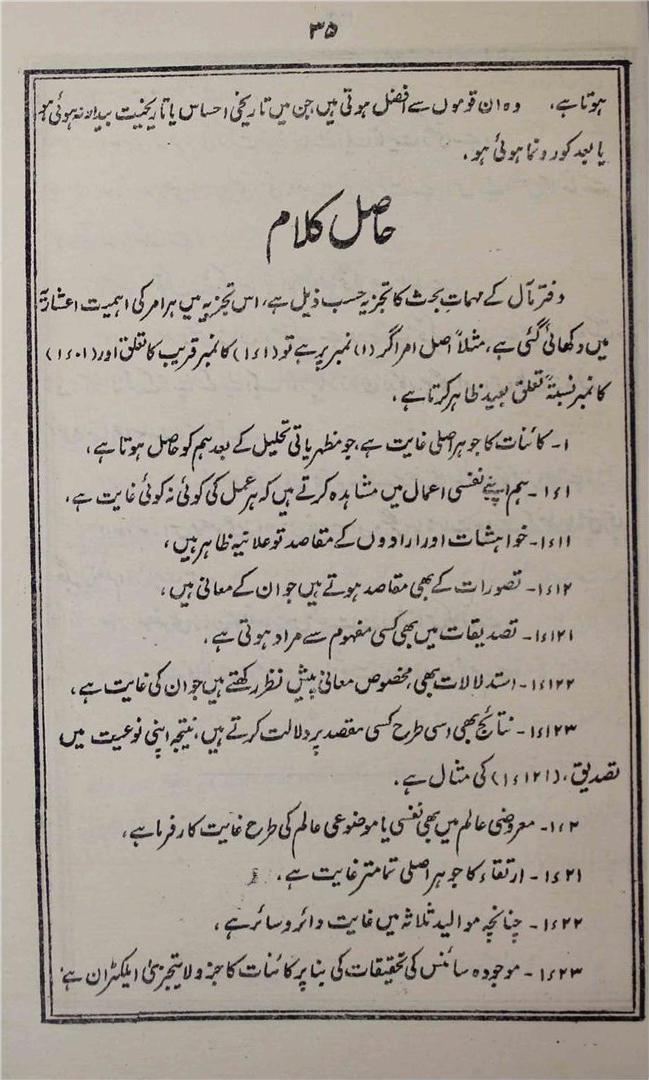 ۳۵
ہوتا ہے، وہ ان قوموں سے افضل ہوتی ہیں، جن میں تاریخی احساس یا تاریخیت پیدا نہ ہوئی ہو
یا بعد کو رونما ہوئی ہو۔
حاصل کلام
دفتر مآل کے مہمات بحث کا تجزیہ حسب ذیل ہے، اس تجزیہ میں ہر امر کی اہمیت اعشاریہ
میں دکھائی گئی ہے، مثلاً اصل امر اگر (۱) نمبر پر ہے تو (۱ء۱) کا نمبر قریب کا تعلق اور (۱ء۰۱)
کا نمبر نسبتہً تعلق بعید ظاہر کرتا ہے،
۱۔ کائنات کا جوہر اصلی غایت ہے، جو مظہریاتی تحلیل کے بعد ہم کو حاصل ہوتا ہے،
۱ء۱۔ ہم اپنے نفسی اعمال میں مشاہدہ کرتے ہیں کہ ہر عمل کی کوئی نہ کوئی غایت ہے،
۱ء۱۱۔ خواہشات اور ارادوں کے مقاصد تو علانیہ ظاہر ہیں،
۱ء۱۲۔ تصورات کے بھی مقاصد ہوتے ہیں جو ان کے معانی ہیں،
۱ء۱۲۱۔ تصدیقات میں بھی کسی مفہوم سے مراد ہوتی ہے،
۱ء۱۲۲۔ استدلالات بھی، مخصوص معانی پیش نظر رکھتے ہیں جو ان کی غایت ہے،
۱ء۱۲۳۔ نتائج بھی اسی طرح کسی مقصد پر دلالت کرتے ہیں، نتیجہ اپنی نوعیت میں
تصدیق، (۱ء۱۲۱) کی مثال ہے۔
۱ء۲۔ معروضی عالم میں بھی نفسی یا موضوعی عالم کی طرح غایت کارفرما ہے،
۱ء۲۱۔ ارتقاء کا جوہر اصلی تمامتر غایت ہے،
۱ء۲۲۔ چنانچہ موالید ثلاثہ میں غایت دائر و سائر ہے،
۱ء۲۳۔ موجودہ سائنس کی تحقیقات کی بنا پر کائنات کا جزو لا یتجزیٰ الیکٹران ہے